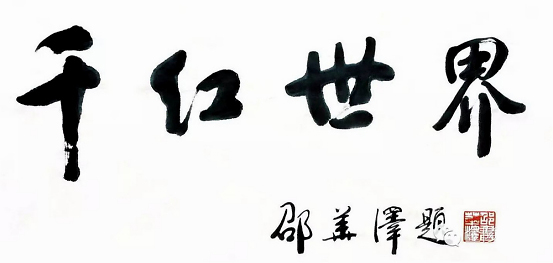 千红世界
邵華澤題